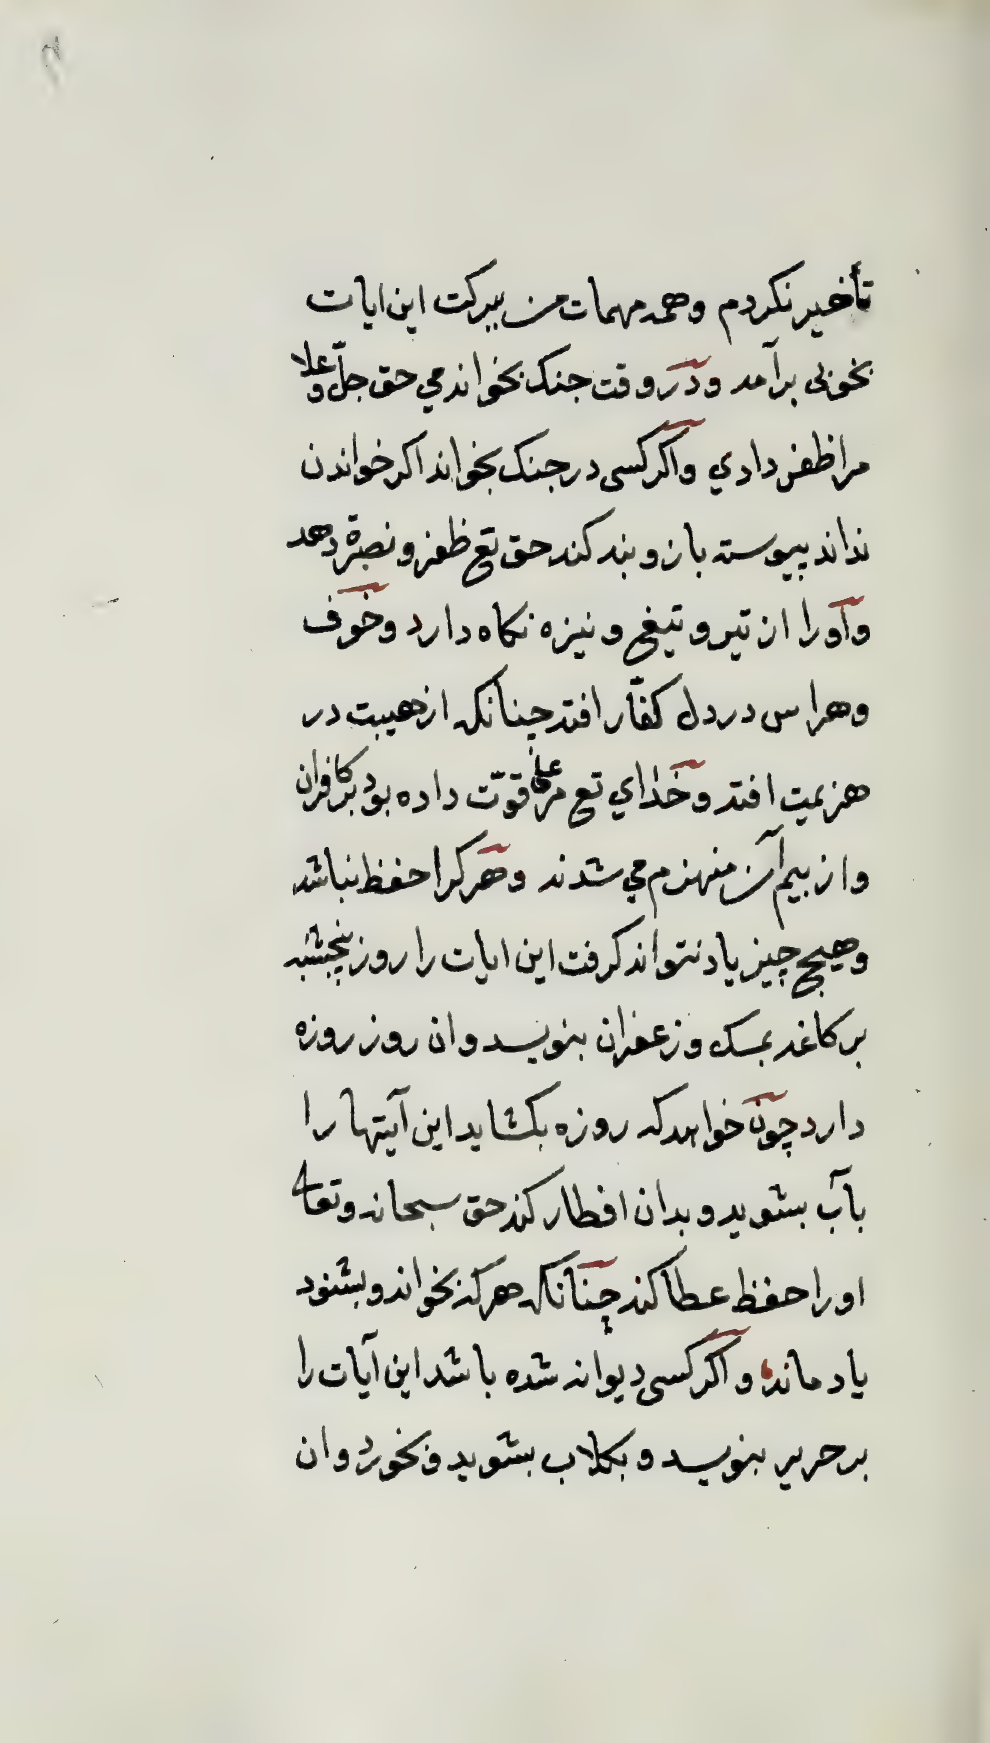 تأخیر نکردم وهمه مهمات من ببرکت این ایات
بخوبی برآمد ودر وقت جنک بخواندمي حق جلّ وعلا
مرا ظفر دادي واکر کسی در جنک بخواند اکر خواندن
نداند پیوسته بازوبند کند حق تع ظفر ونصرة دهد
واورا از تیر وتیغ ونیزه نکاه دارد وخوف
وهراس در دل کفّار افتد چنانکه از هیبت در
هزیمت افتد وخذاي تع مر علی قوّت داده بود بر کافران
واز بیم آن منهزم مي شدند وهر کرا حفظ نباشد
وهیچ چیز یاد نتواند کرفت این ایات را روز پنجشنبه
بر کاغد بمسک وزعفران بنویسد وان روز روزه
دارد چون خواهد که روزه بکشاید این آیتها را
بآب بشوید وبدان افطار کند حق سبحانه وتعالی
اورا حفظ عطا کند چنانکه هر که بخواند وبشنود
یاد ماند واکر کسی دیوانه شده باشد این آیات را
بر حریر بنویسد وبکلاب بشوید وبخورد وان